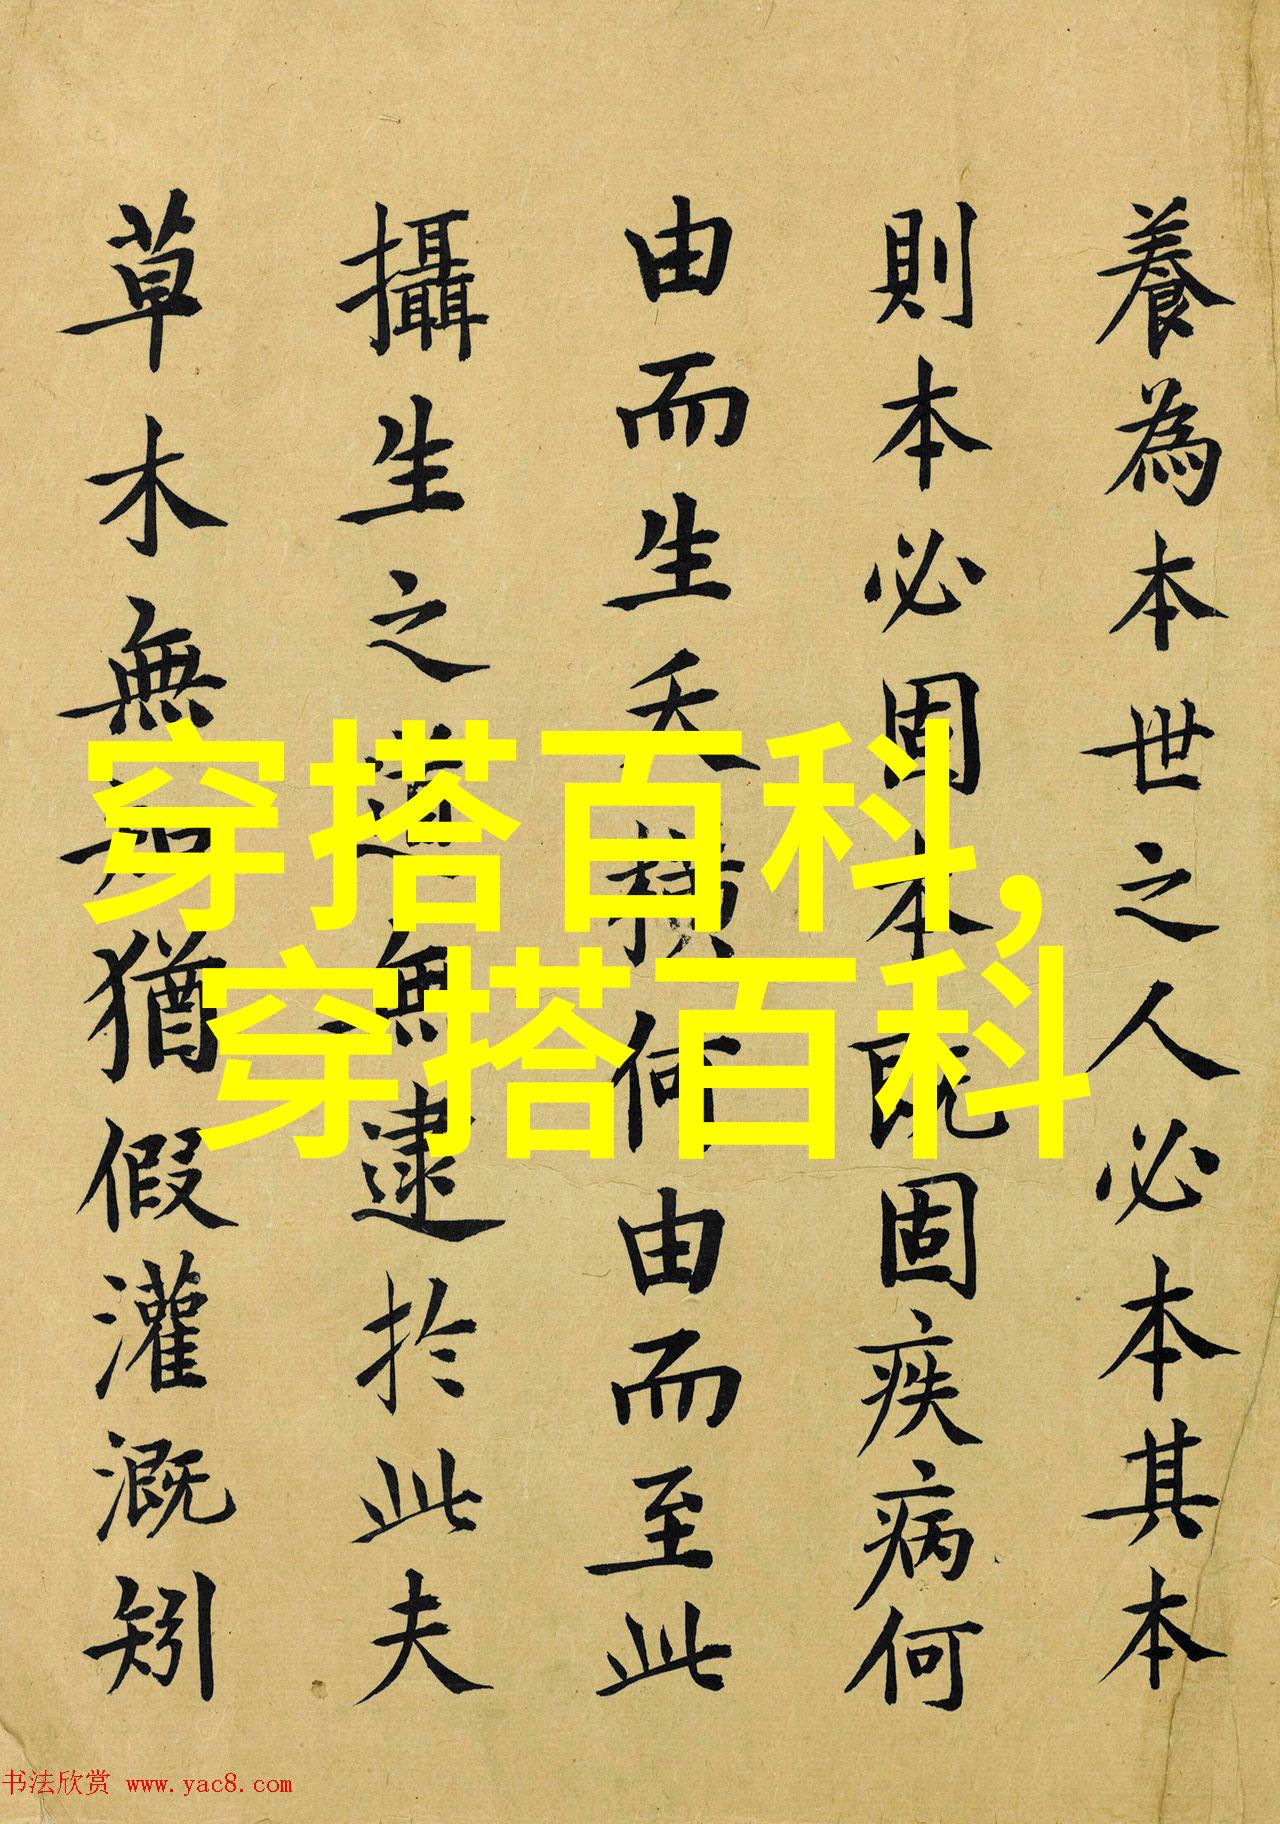 養為本世之人必本其本
則本必固本既固疾病何
由而生夭橫何由而至此
攝生之道無逮於此夫
草木無知猶假灌溉矧
穿搭百科,
穿搭百科
书法欣赏 www.yac8.com